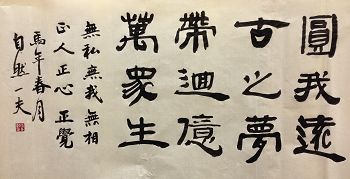 圓我遠
古之夢
帶迴億
萬衆生
無私無我無相
正人正心正覺
馬年春月
自然一夫